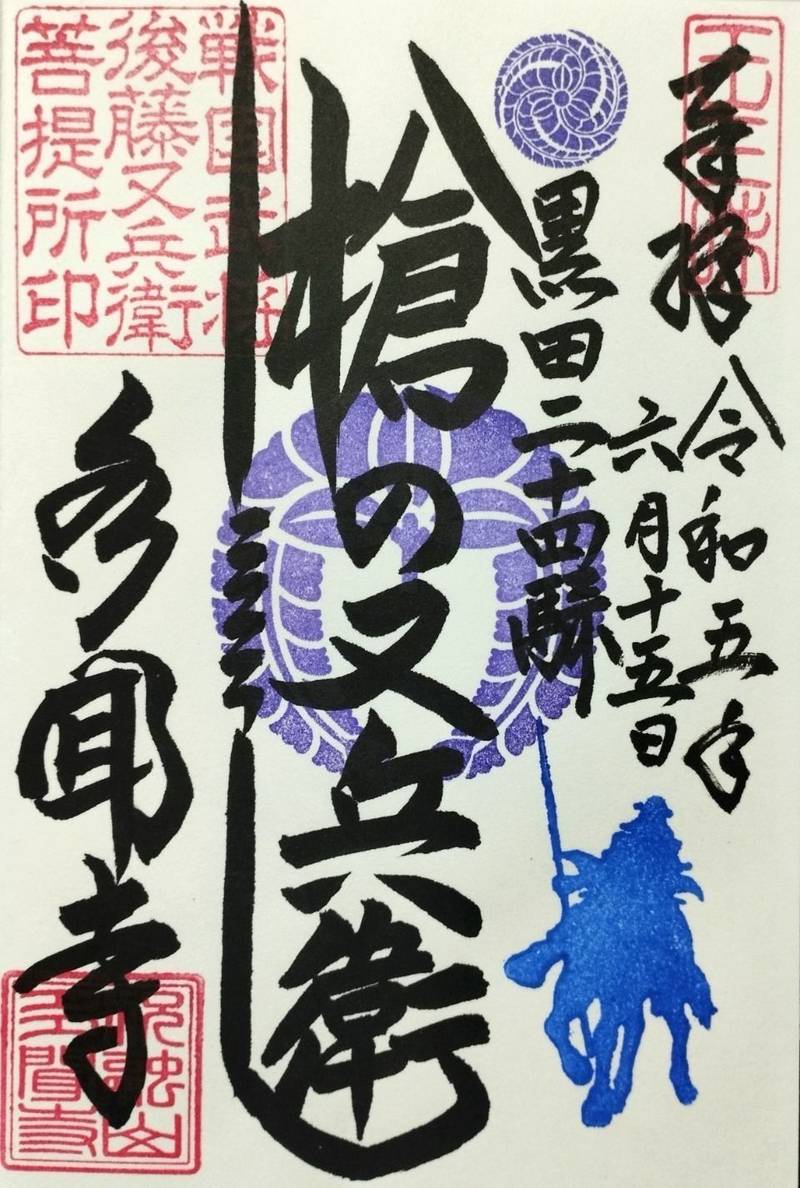 奉拝
令和五年
六月十五日
黒田二十四騎
槍の又兵衛
戦国武将
後藤又兵衛
菩提所印
多聞寺
祝融山
多聞寺